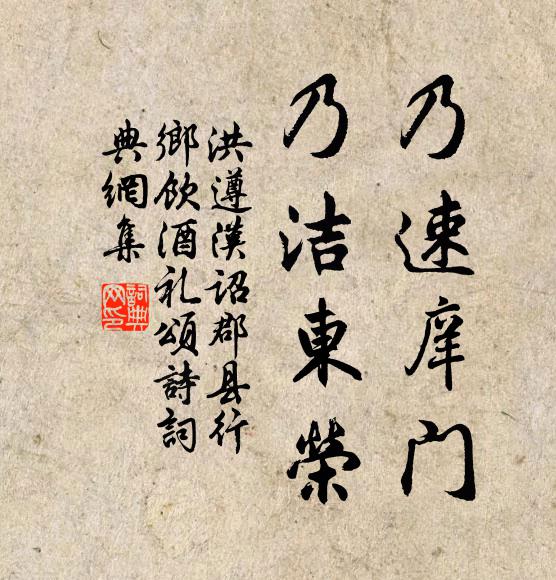 乃速庠门
乃洁東榮
洪遵漢詔郡县行
鄉飲酒礼頌詩詞
典網集
詞典
网印